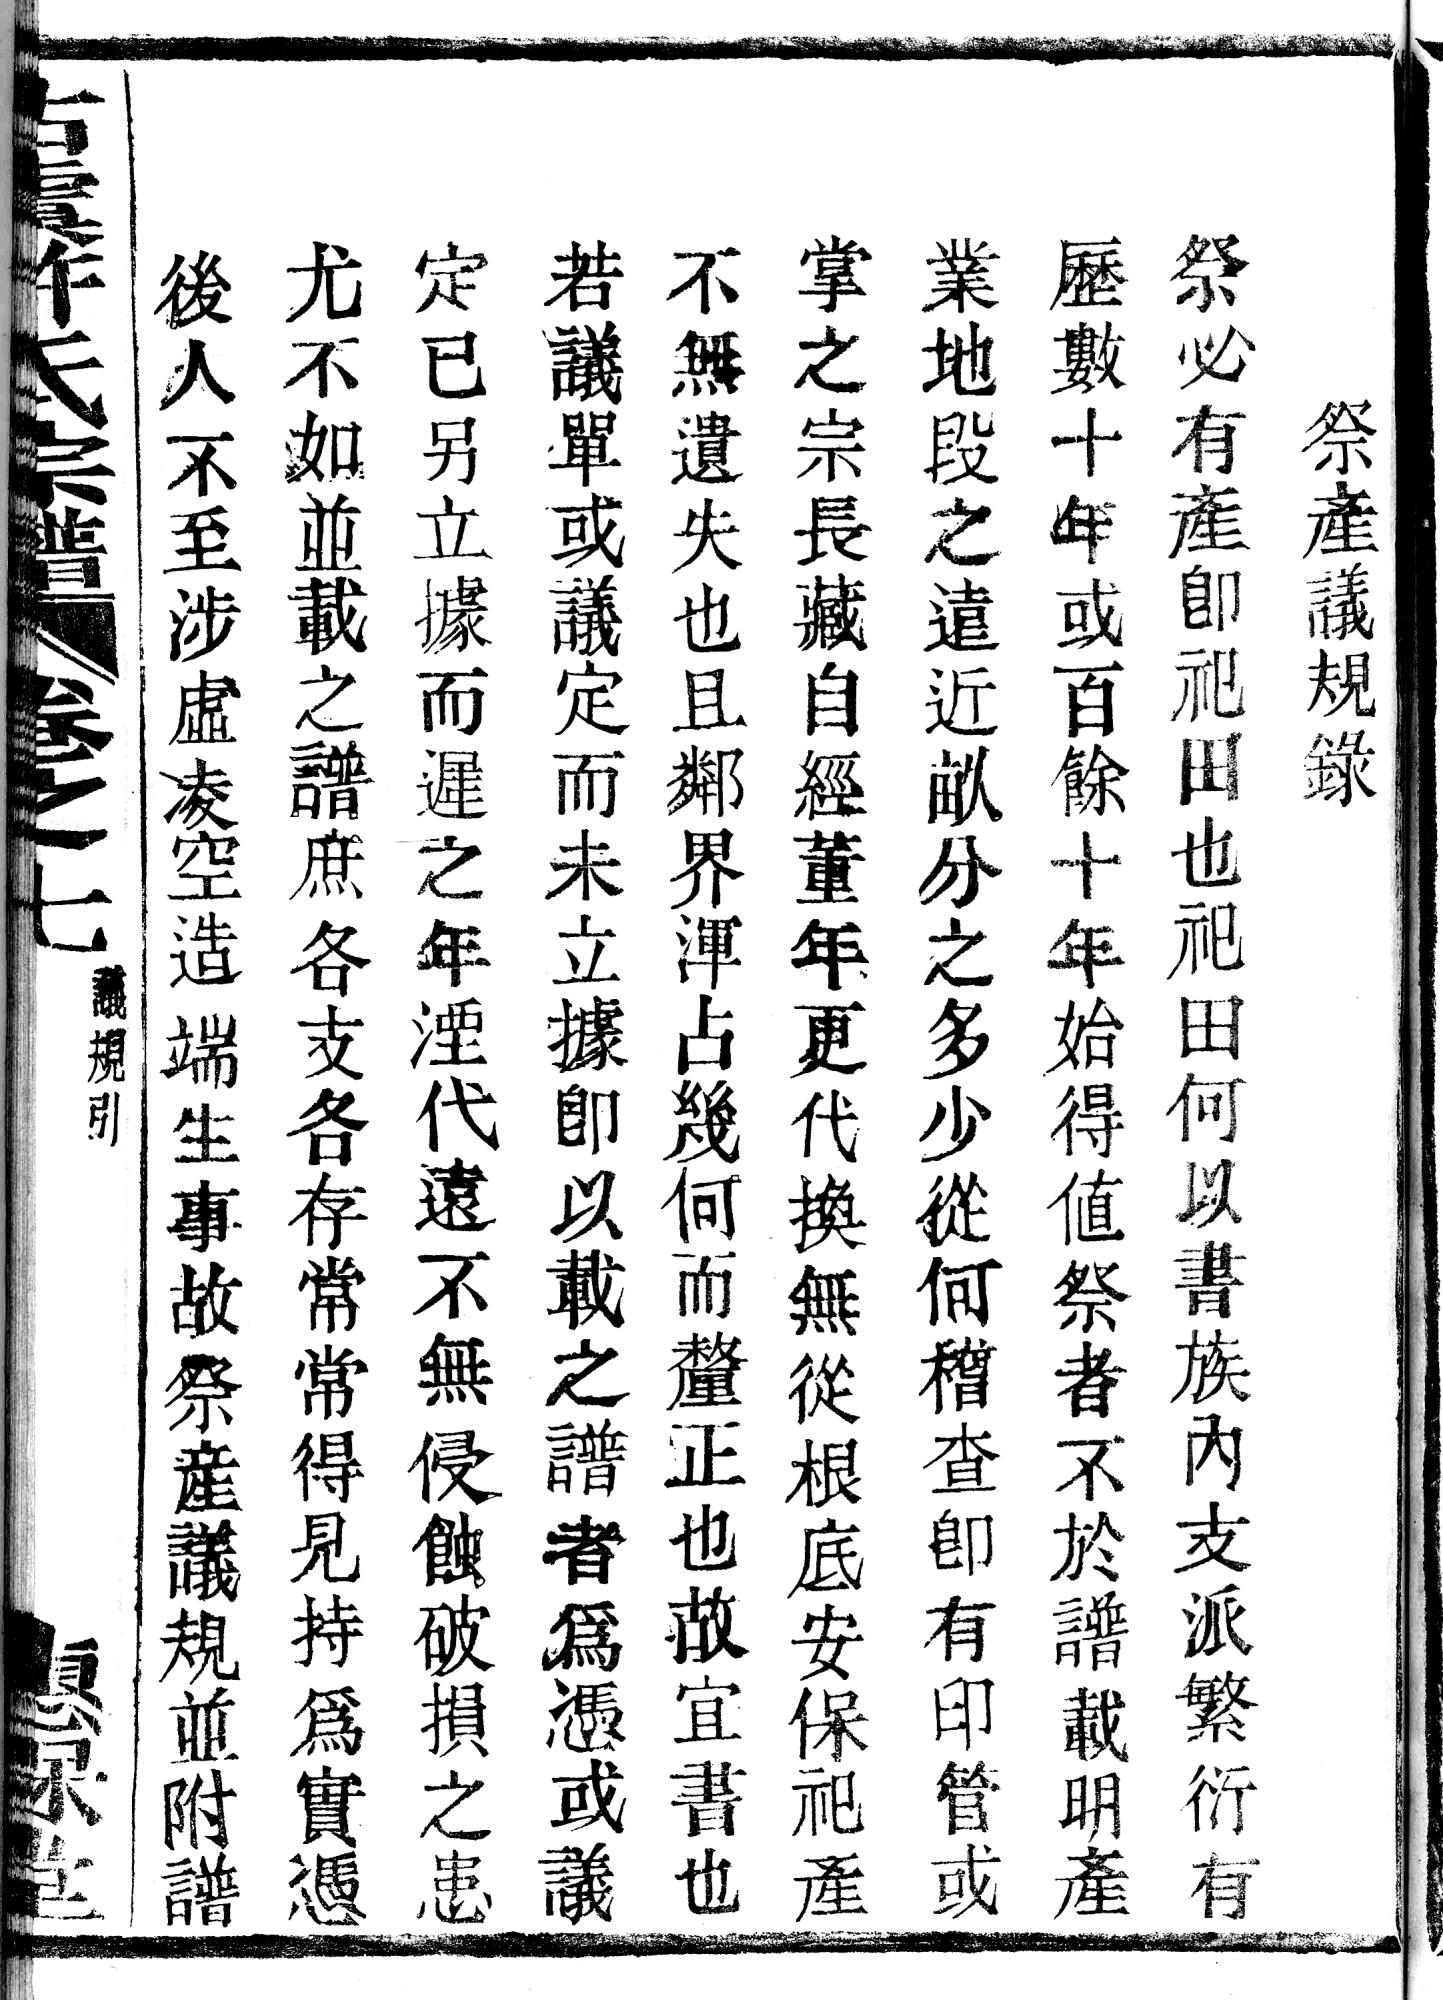 祭產議規錄
祭必有產卽祀田也祀田何以書族內支派繁衍有
歷數十年或百餘十年始得値祭者不於譜載明產
業地段之遠近畝分之多少從何稽查卽有印管或
掌之宗長藏自經董年更代換無從根底安保祀產
不無遺失也且鄰界渾占幾何而釐正也故宜書也
若議單或議定而未立據卽以載之譜者爲憑或議
定已另立據而遲之年湮代遠不無侵蝕破損之患
尤不如並載之譜庶各支各存常常得見持爲實憑
後人不至涉虛凌空造端生事故祭産議規並附譜
古虞許氏宗譜 卷之七 議規引